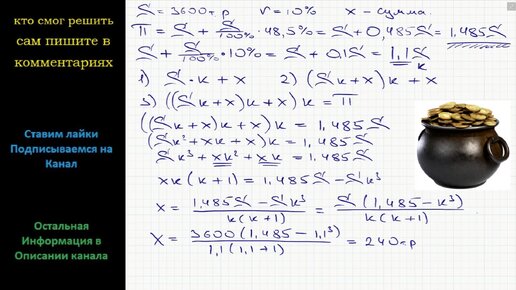 кто смог решить
сам пишите в
комментариях
Ставим лайки
Подписываемся на
Канал
Остальная
Информация в
Описании канала
S = 3600т.р r = 10% x - сумма.
П = S + S/100% · 48,5% = S + 0,485S = 1,485S
S + S/100% · 10% = S + 0,1S = 1,1S
k
1) S·k + x 2) (Sk + x)k + x
3) ((Sk + x)k + x)k = П
((Sk + x)k + x)k = 1,485S
(Sk² + xk + x)k = 1,485S
Sk³ + xk² + xk = 1,485S
xk(k + 1) = 1,485S - Sk³
x = (1,485S - Sk³)/(k(k + 1)) = S(1,485 - k³)/(k(k + 1))
x = 3600(1,485 - 1,1³)/(1,1(1,1 + 1)) = 240т.р